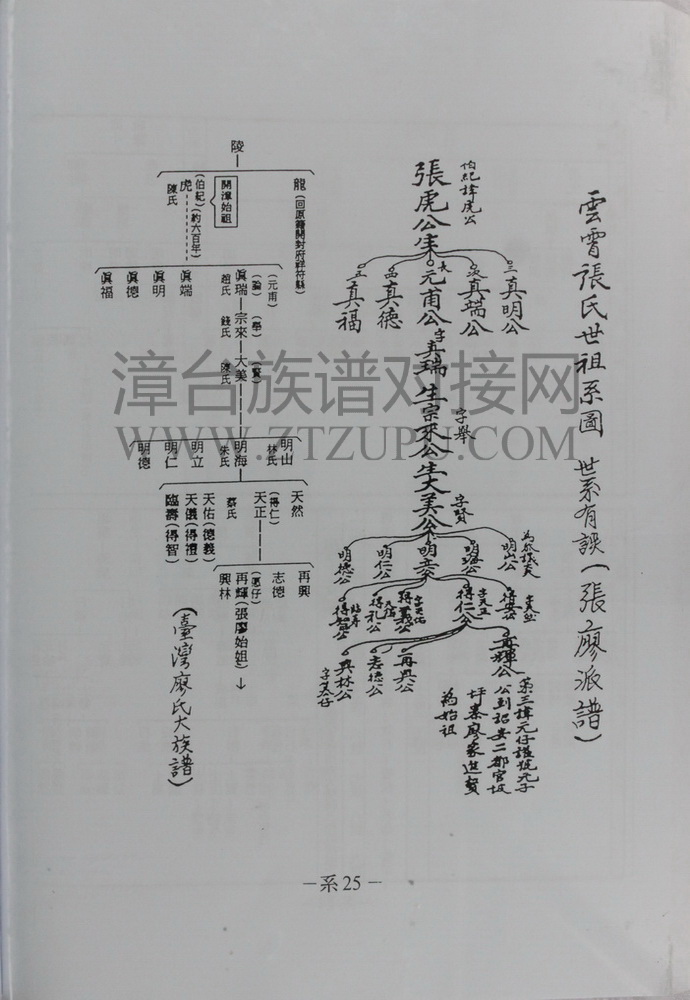 雲霄張氏世祖系圖 世系有誤（張廖派譜）
伯紀諱虎公
張虎公生
三真明公
真端公
長元甫公
四真德
五真福
字真瑞生宗來公生大美公
字舉
字賢
明山公
明海公
明立公
明仁公
明德公
得安公
得仁公
得義公
得礼公
得智公
再輝公
再興公
志德公
興林公
第三諱元仔諡號元子
公到詔安二都官坡
坪寨廖家進贅
為始祖
陵
龍（回原籍開封府祥符縣）
開漳始祖
虎
（伯紀）（約六百年）
陳氏
（元甫）
（諭）
真瑞
趙氏
真端
真明
真德
真福
（舉）
宗來
錢氏
（賢）
大美
陳氏
明山
林氏
明海
朱氏
明立
明仁
明德
天然
（得仁）
天正
蔡氏
天佑（德義）
天儀（得禮）
臨壽（得智）
再興
志德
再輝（張廖始祖）
興林
（臺灣廖氏大族譜）
漳台族谱对接网
WWW.ZTZUPU.COM
－系 25－